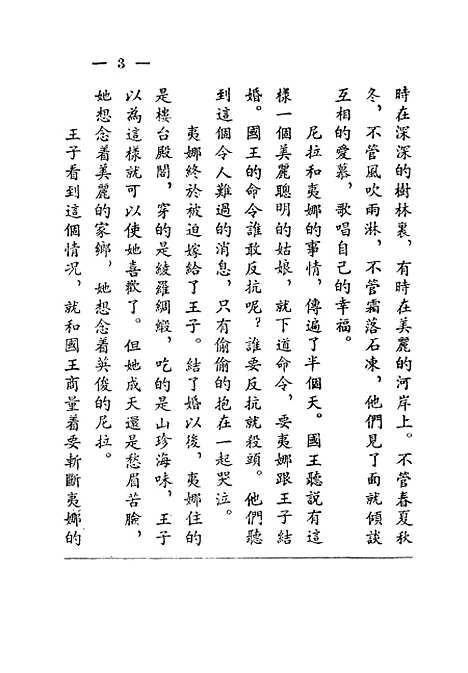 — 3 —
時在深深的樹林裏，有時在美麗的河岸上。不管春夏秋
冬，不管風吹雨淋，不管霜落石凍，他們見了面就傾談
互相的愛慕，歌唱自己的幸福。
尼拉和夷娜的事情，傳遍了半個天。國王聽說有這
樣一個美麗聰明的姑娘，就下道命令，要夷娜跟王子結
婚。國王的命令誰敢反抗呢？誰要反抗就殺頭。他們聽
到這個令人難過的消息，只有偷偷的抱在一起哭泣。
夷娜終於被迫嫁給了王子。結了婚以後，夷娜住的
是樓台殿閣，穿的是綾羅綢緞，吃的是山珍海味，王子
以為這樣就可以使她喜歡了。但她成天還是愁眉苦臉，
她想念着美麗的家鄉，她想念着英俊的尼拉。
王子看到這個情况，就和國王商量着要斬斷夷娜的